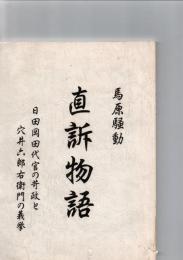 馬原騒動
直訴物語
日田岡田代官の苛政と
穴井六郎右衛門の義挙